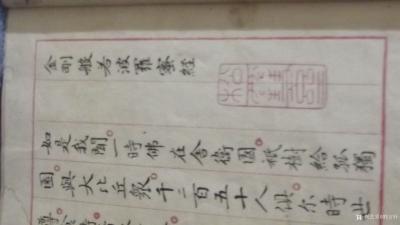 金剛般若波羅蜜經
如是我聞一時佛在舍衛國祇樹給孤獨
園與大比丘眾千二百五十人俱尔時世
尊